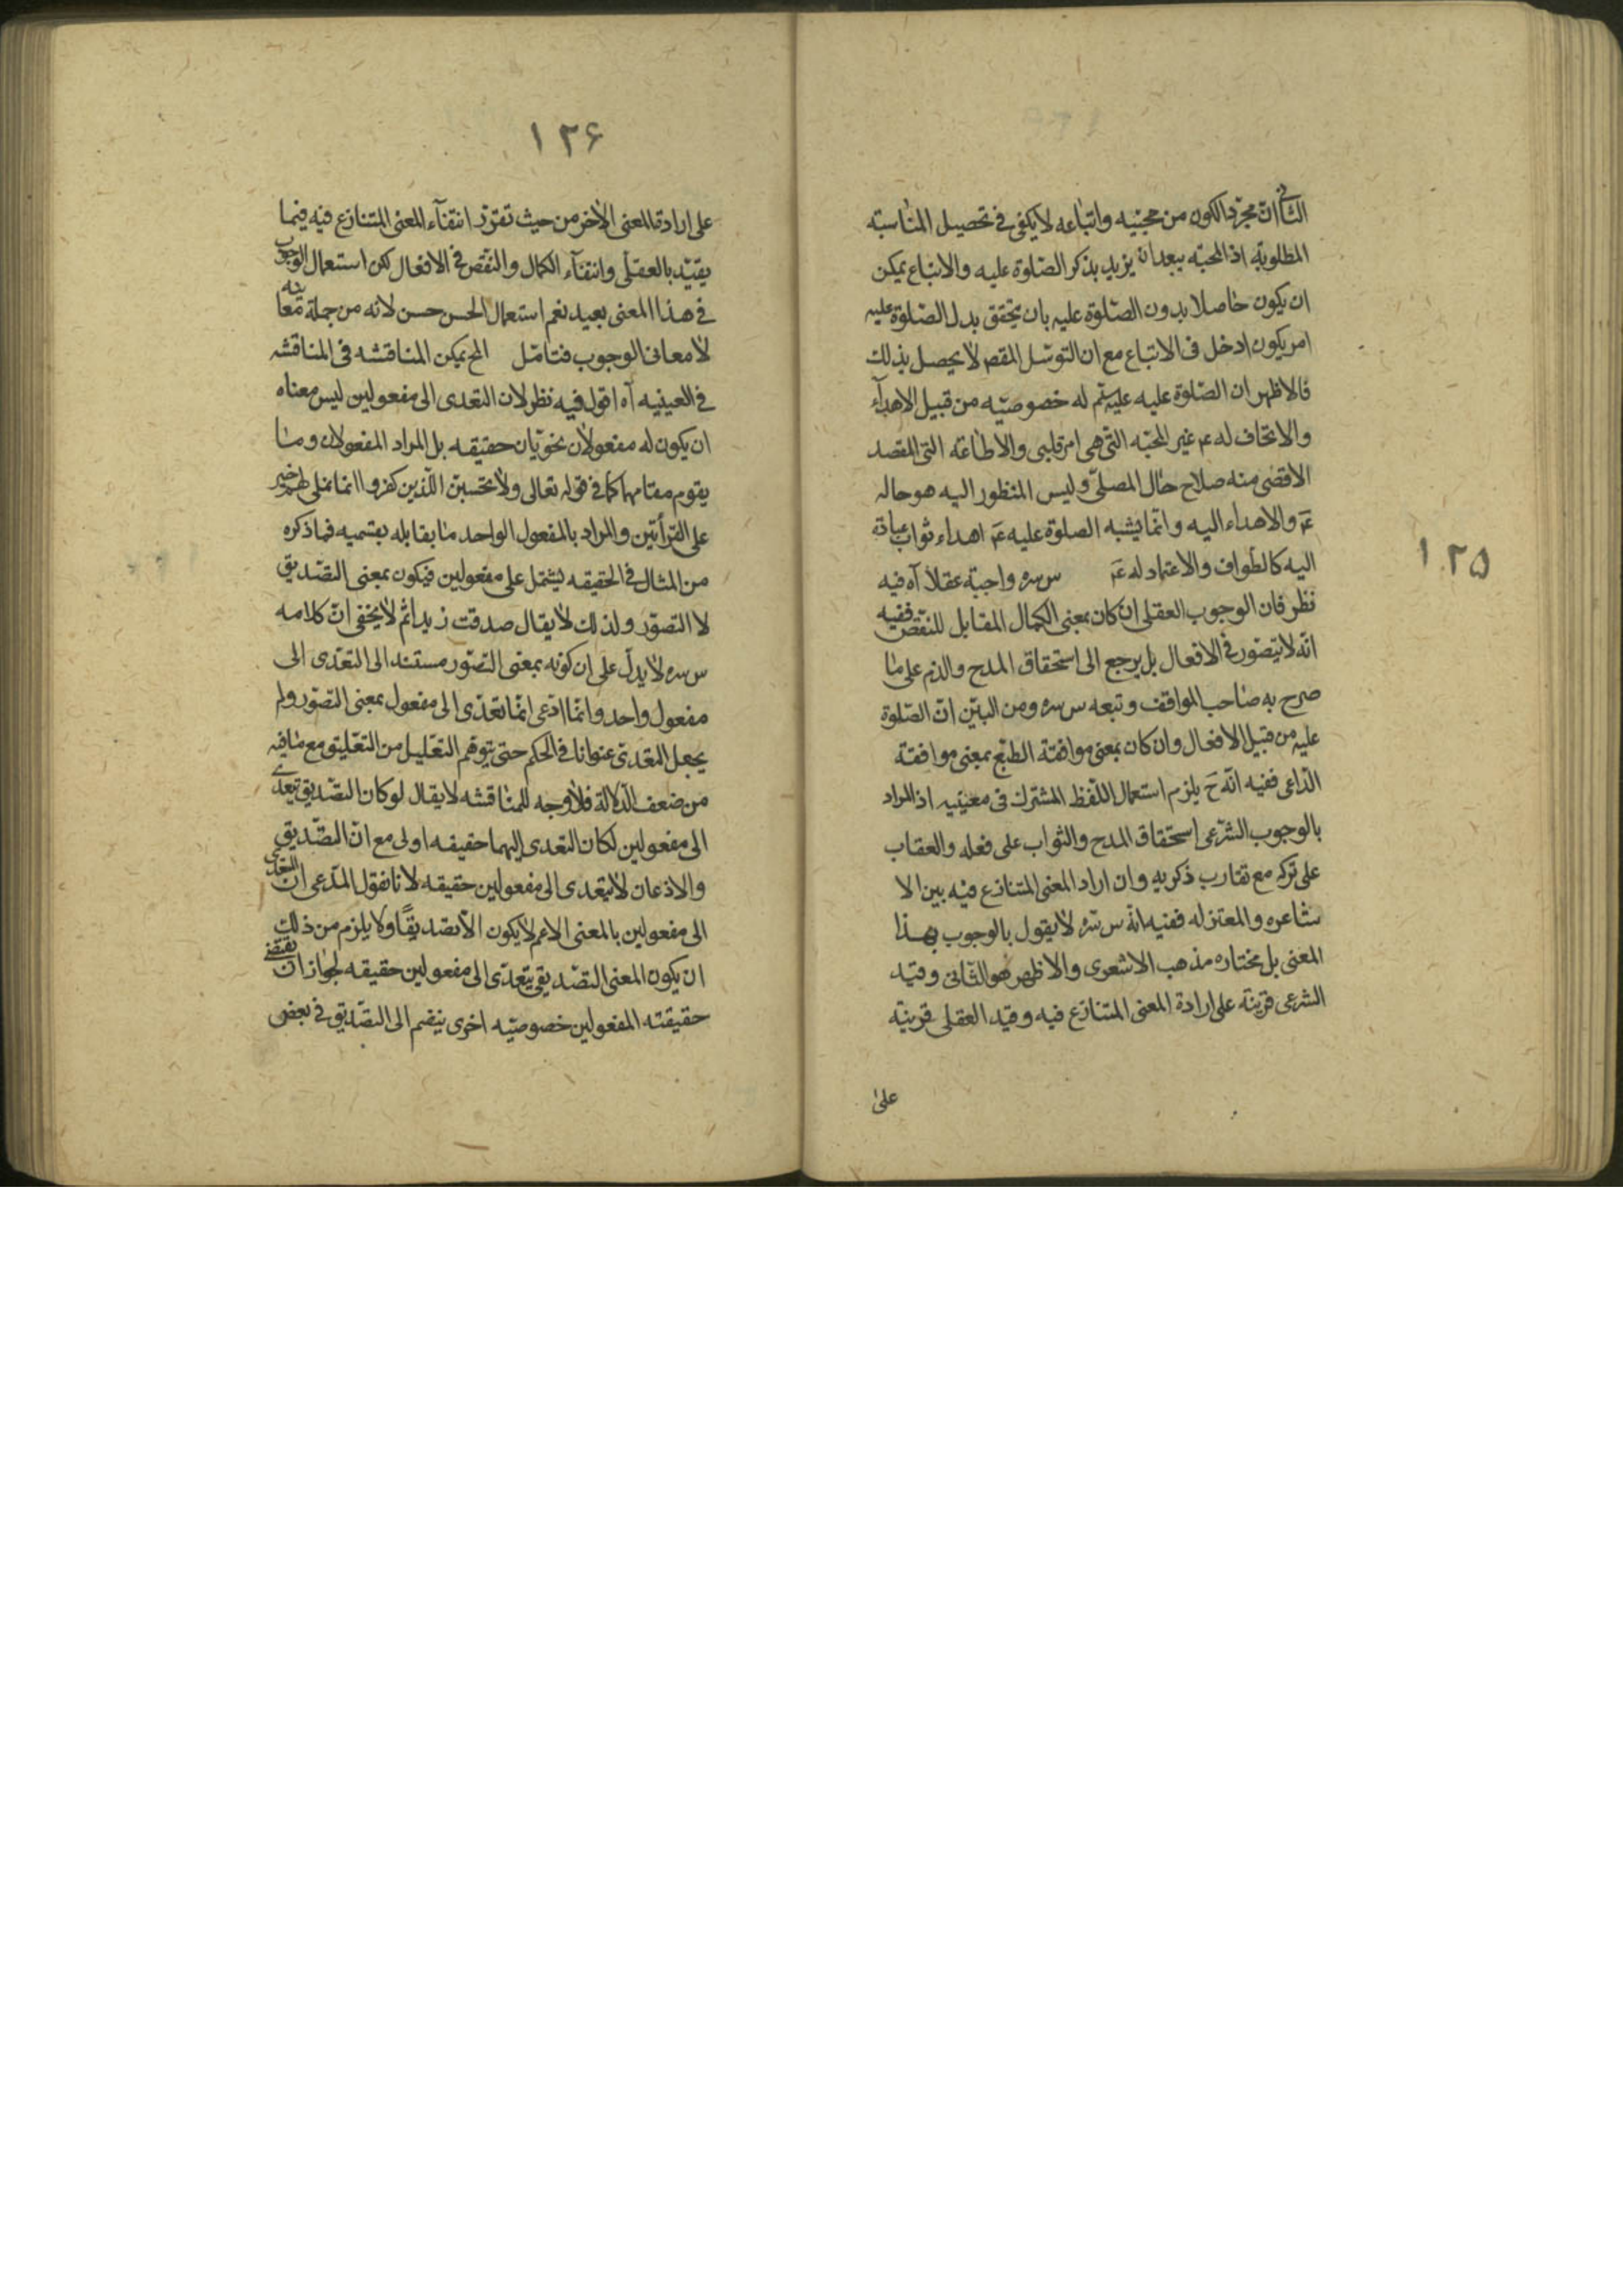 الثانى ان مجرد الكون من محبيه واتباعه لا يكفى فى تحصيل المناسبة
المطلوبة اذ المحبة يبعد ان يزيد بذكر الصلوة عليه والاتباع يمكن
ان يكون حاصلا بدون الصلوة عليه بان يتحقق بدل الصلوة عليه
امر يكون ادخل فى الاتباع مع ان التوسل المقصـ لا يحصل بذلك
فالاظهر ان الصلوة عليه له خصوصيه من قبيل الاهدآء
والاتحاف له عم غير المحبه التى هى امر قلبى والاطاعة التى المقصد
الاقصى منه صلاح حال المصلى وليس المنظور اليه هو حاله
عم والاهداء اليه وانما يشبه الصلوة عليه عم اهداء ثواب عبادة
اليه كالطواف والاعتماد له عم س سره واجبة عقلا آه فيه
نظر فان الوجوب العقلى ان كان بمعنى الكمال المقابل للنقص ففيه
انه لا يتصور فى الافعال بل يرجع الى استحقاق المدح والذم على ما
صرح به صاحب المواقف وتبعه س سره ومن البين ان الصلوة
عليه من قبيل الافعال وان كان بمعنى موافقة الطبع بمعنى موافقة
الداعى ففيه انه ح يلزم استعمال اللفظ المشترك فى معنييه اذ المراد
بالوجوب الشرعى استحقاق المدح والثواب على فعله والعقاب
على تركه مع تقارب ذكريه وان اراد المعنى المتنازع فيه بين الا
شاعره والمعتزله ففيه انه س سره لا يقول بالوجوب بهذا
المعنى بل مختاره مذهب الاشعرى والاظهر هو الثانى وقيد
الشرعى قرينة على ارادة المعنى المتنازع فيه وقيد العقلى قرينة
على
١٢٥
١٢۶
على ارادة المعنى الاخر من حيث تقرر انتفآء المعنى المتنازع فيه فيما
يقيد بالعقلى وانتفآء الكمال والنقص فى الافعال لكن استعمال الوجوب
فى هذا المعنى بعيد نعم استعمال الحسن حسن لانه من جملة معانيه
لا معانى الوجوب فتامل المح يمكن المناقشه فى المناقشه
فى العينيه آه اقول فيه نظر لان التعدى الى مفعولين ليس معناه
ان يكون له مفعولان نحويان حقيقه بل المراد المفعولان وما
يقوم مقامهما كما فى قوله تعالى ولا تحسبن الذين كفروا انما نملى لهم خير
على القرأتين والمراد بالمفعول الواحد ما يقابله بقسميه فما ذكره
من المثال فى الحقيقه يشتمل على مفعولين فيكون بمعنى التصديق
لا التصور ولذلك لا يقال صدقت زيدا ثم لا يخفى ان كلامه
س سره لا يدل على ان كونه بمعنى التصور مستند الى التعدى الى
مفعول واحد وانما ادعى انما تعدى الى مفعول بمعنى التصور ولم
يجعل التعدى عنوانا فى الحكم حتى يتوهم التعليل من التعليق مع ما فيه
من ضعف الدلالة فلا وجه للمناقشه لا يقال لو كان التصديق يتعدى
الى مفعولين لكان التعدى اليهما حقيقه اولى مع ان التصديق
والاذعان لا يتعدى الى مفعولين حقيقه لانا نقول المدعى ان التعدى
الى مفعولين بالمعنى الاعم لا يكون الا تصديقًا ولا يلزم من ذلك
ان يكون المعنى التصديقى يتعدى الى مفعولين حقيقه لجواز ان يقتضى
حقيقته المفعولين خصوصيه اخرى ينضم الى التصديق فى بعض